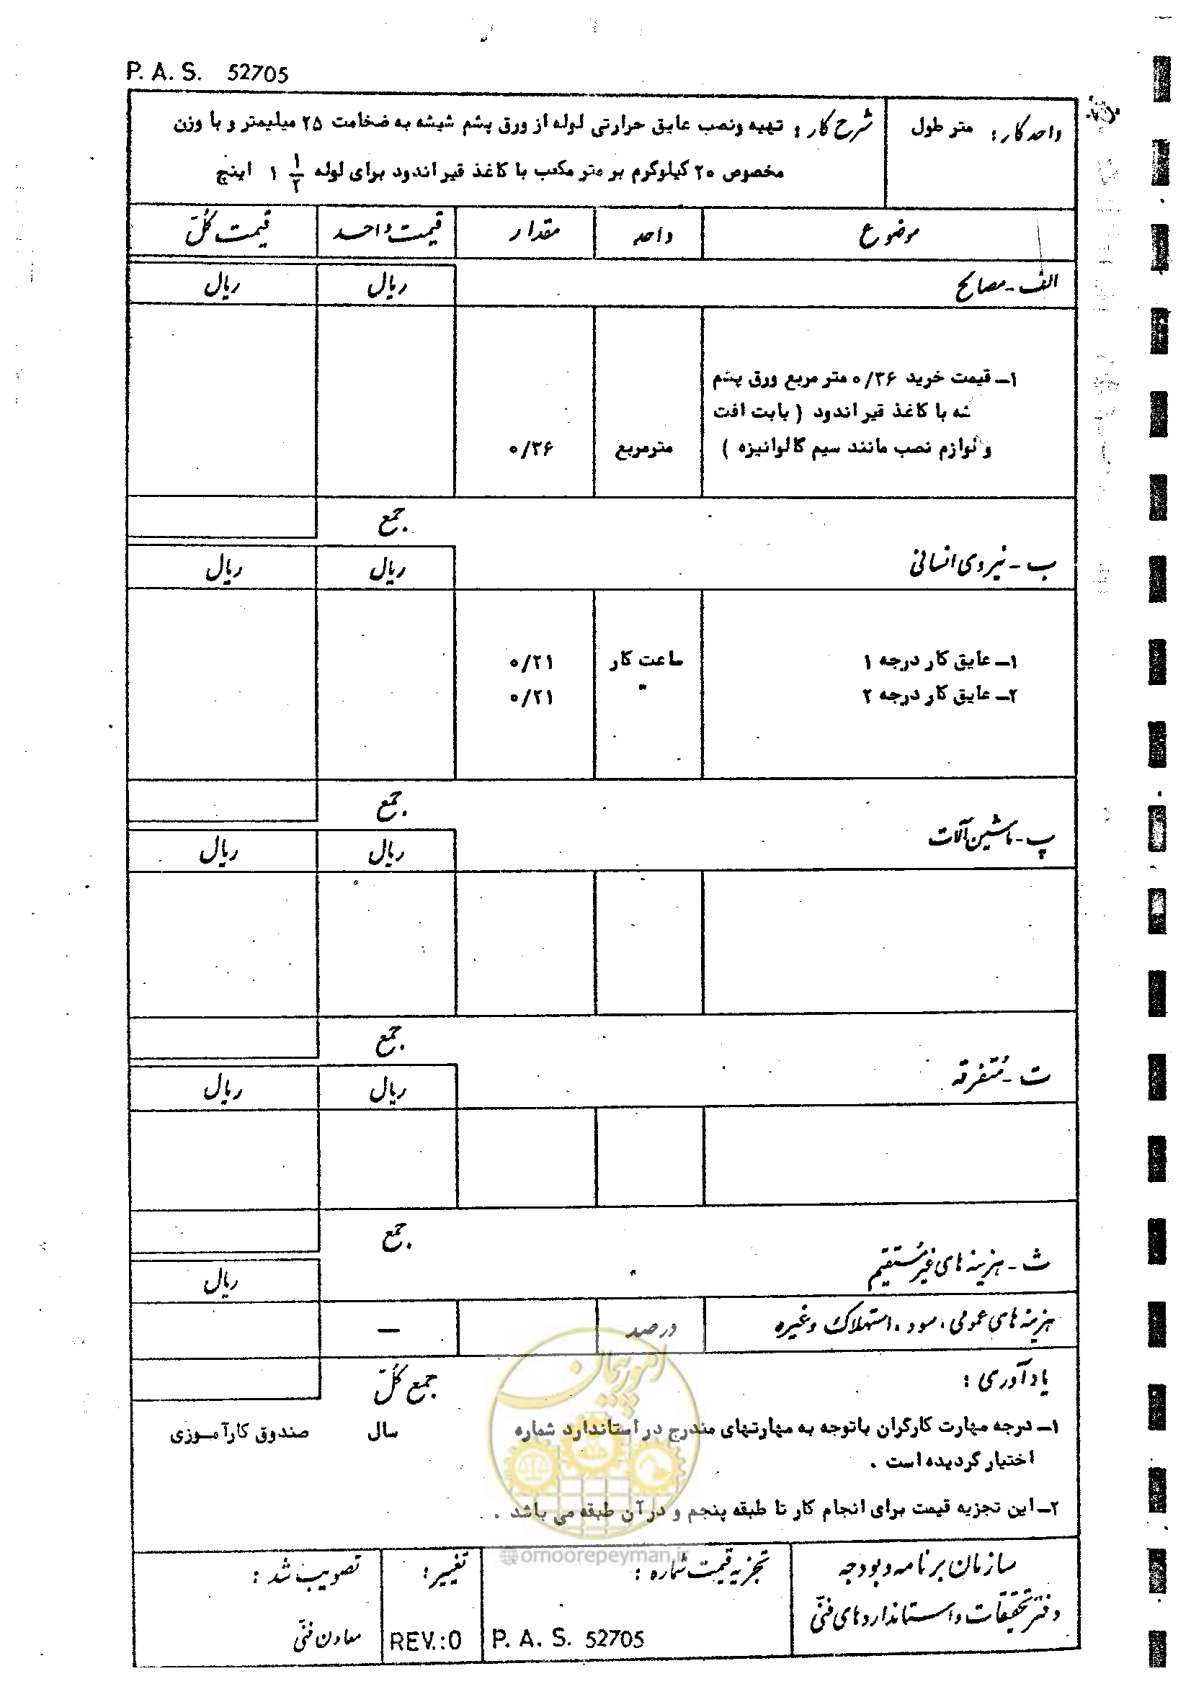 P. A. S. 52705
واحد کار : متر طول
شرح کار : تهیه ونصب عایق حرارتی لوله از ورق پشم شیشه به ضخامت ۲۵ میلیمتر و با وزن
مخصوص ۲۰ کیلوگرم بر متر مکعب با کاغذ قیر اندود برای لوله ۱ ۱/۲ اینچ
موضوع واحد مقدار قیمت واحد قیمت کلّ
الف - مصالح ریال ریال
۱ــ قیمت خرید ۰/۳۶ متر مربع ورق پشم
شه با کاغذ قیر اندود ( بابت افت
و لوازم نصب مانند سیم گالوانیزه ) مترمربع ۰/۳۶
جمع
ب - نیروی انسانی ریال ریال
۱ــ عایق کار درجه ۱ ساعت کار ۰/۲۱
۲ــ عایق کار درجه ۲ " ۰/۲۱
جمع
پ - ماشین آلات ریال ریال
جمع
ت - مُتفرقه ریال ریال
جمع
ث - هزینه های غیرمُستقیم ریال
هزینه های عمومی ، سود ، استهلاک وغیره درصد —
یادآوری : جمع کلّ
۱ــ درجه مهارت کارگران باتوجه به مهارتهای مندرج در استاندارد شماره سال صندوق کارآموزی
اختیار گردیده است .
۲ــ این تجزیه قیمت برای انجام کار تا طبقه پنجم و در آن طبقه می باشد .
امور پیمان
@omoorepeyman.ir
سازمان برنامه و بودجه تجزیه قیمت شماره : تغییر : تصویب شد :
دفتر تحقیقات و استانداردهای فنّی P. A. S. 52705 REV.:0 معاون فنّی